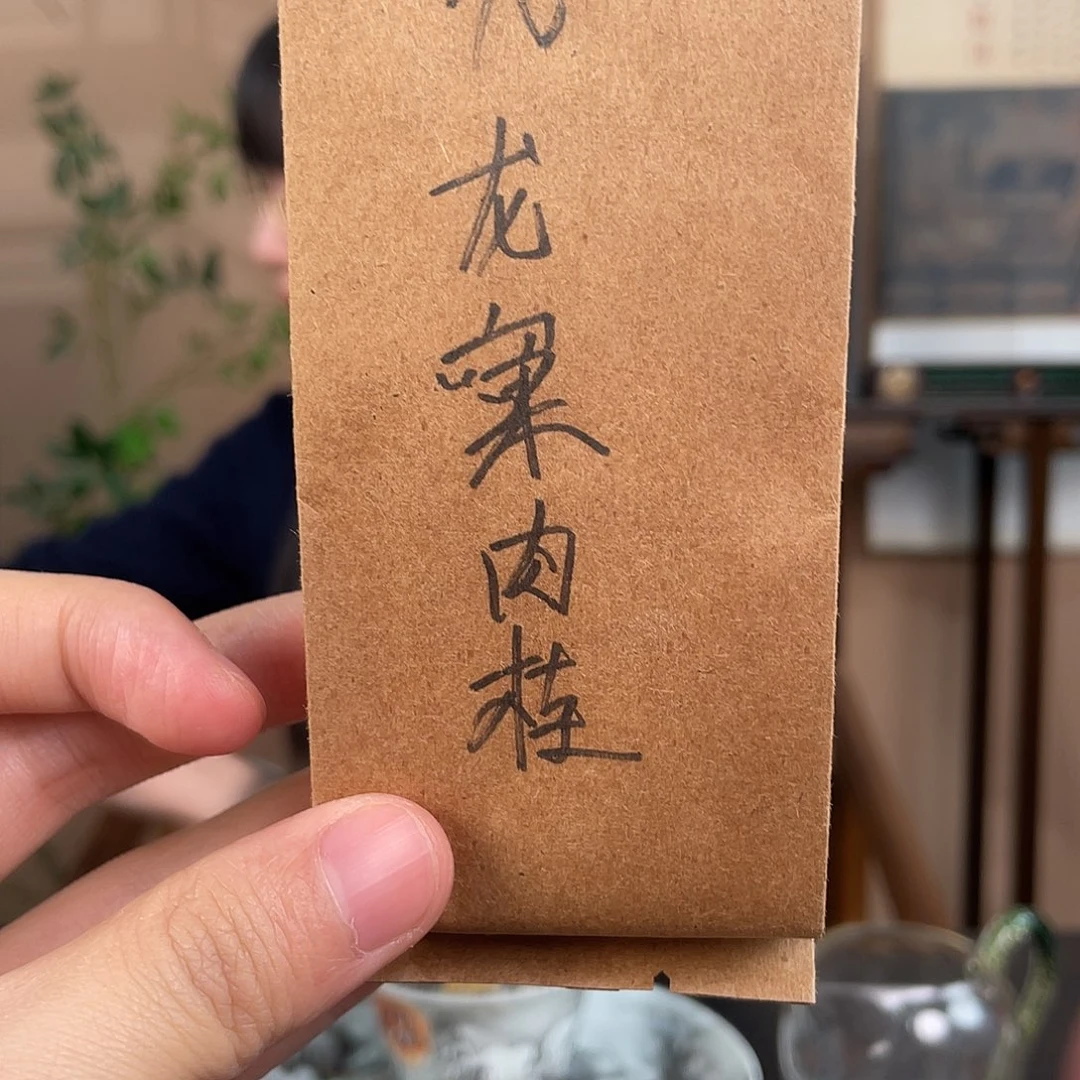 龙窠肉桂